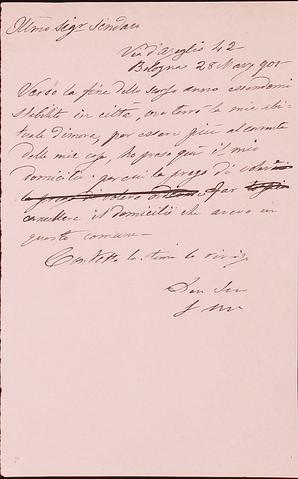 Illmo Sigr Sindaco
Via d'Azeglio 42
Bologna 28 Marzo 901
Verso la fine dello scorso anno essendomi
stabilito in città, ove terrò la mia abi-
tuale dimora, per essere più al corrente
delle mie cose, ho preso qui il mio
domicilio. per cui la prego di
la prego di volere far
cancellare il domicilio che avevo in
questo comune —
Con tutta la stima la riverisco